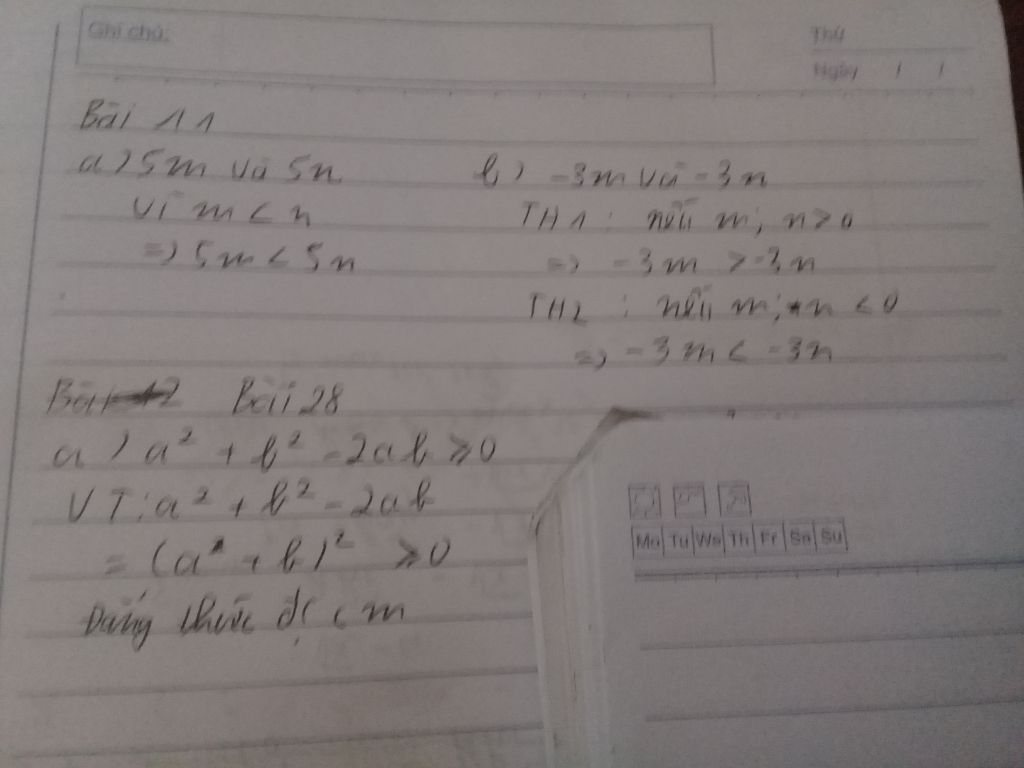 Ghi chú:
Thứ
Ngày / /
Bài 11
a) 5m và 5n
vì m < n
=> 5m < 5n
b) -3m và -3n
TH1 : nếu m; n > 0
=> -3m > -3n
TH2 : nếu m; n < 0
=> -3m < -3n
Bài 12 Bài 28
a) a² + b² - 2ab ⩾ 0
VT: a² + b² - 2ab
= (a + b)² ⩾ 0
Đẳng thức đc cm
Mo Tu We Th Fr Sa Su